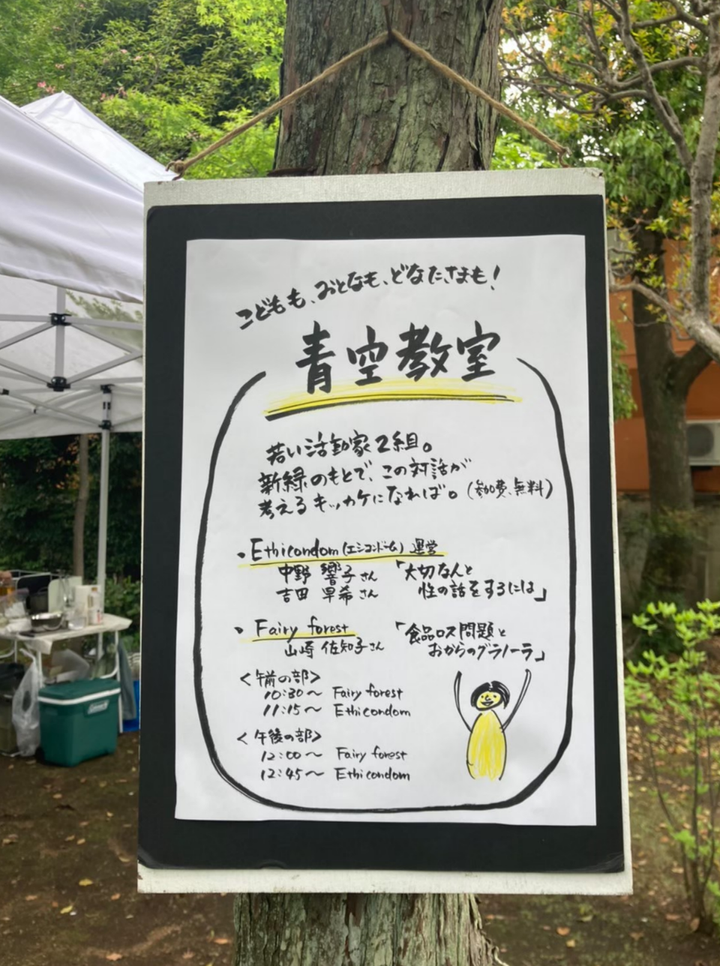 こどもも、おとなも、どなたさまも!
青空教室
若い活動家2組。
新緑のもとで、この対話が
考えるキッカケになれば。(参加費、無料)
・Ethicondom(エシコンドーム) 運営
中野 響子さん 「大切な人と
吉田 早希さん 性の話をするには」
・Fairy forest 「食品ロス問題と
山崎 佐知子さん おからのグラノーラ」
<午前の部>
10:30〜 Fairy forest
11:15〜 Ethicondom
<午後の部>
12:00〜 Fairy forest
12:45〜 Ethicondom
Coleman